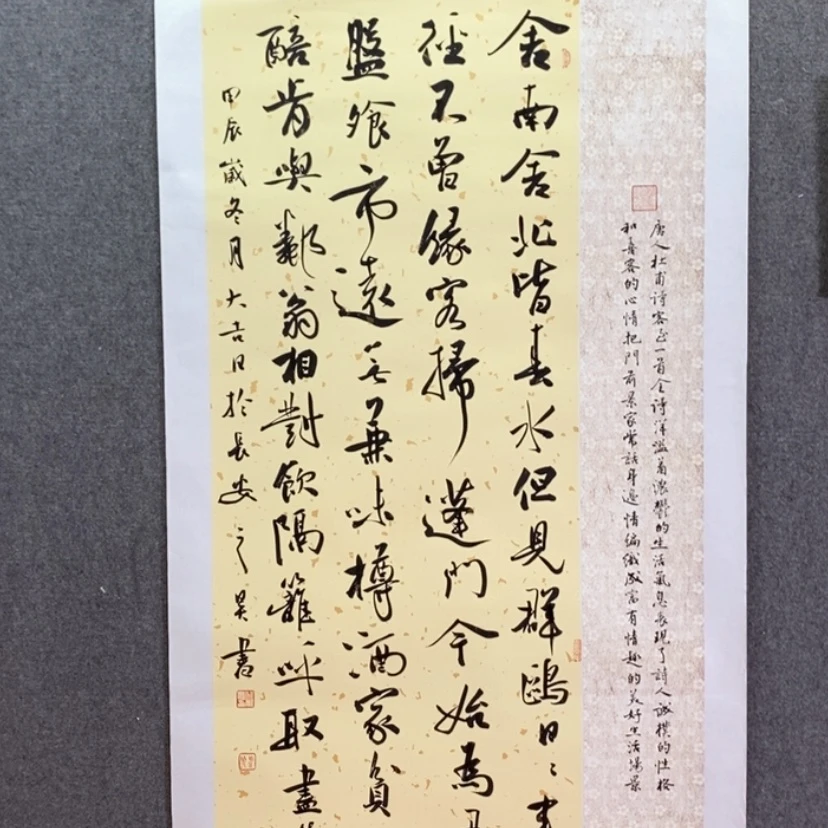 唐人杜甫诗客至一首全诗洋溢着濃鬱的生活氣息表現了詩人誠樸的性格
和喜客的心情把門前景家常話身邊情編織成富有情趣的美好生活場景
舍南舍北皆春水但見群鷗日〻来
徑不曾緣客掃蓬門今始為
盤飧市遠無兼味樽酒家貧
醅肯與鄰翁相對飲隔籬呼取盡
甲辰歲冬月大吉日於長安之昊書